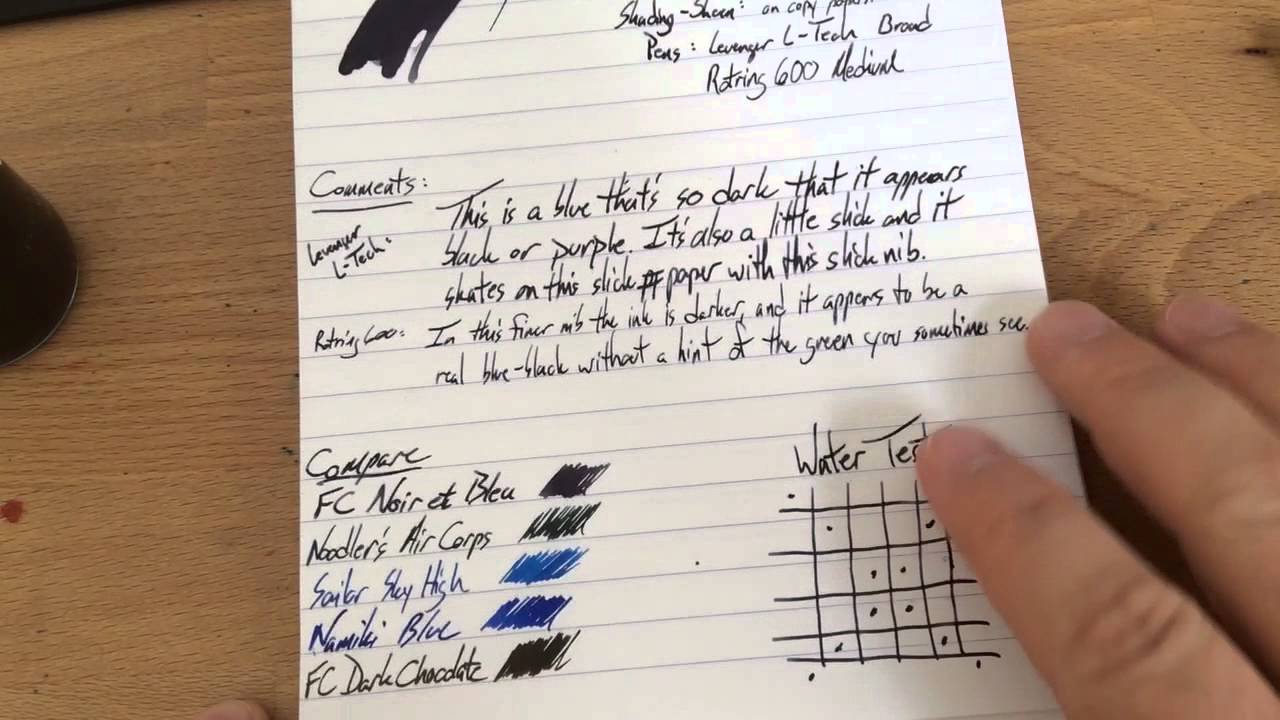 Shading-Sheen: on copy paper
Pens: Levenger L-Tech Broad
Rotring 600 Medium
Comments:
Levenger
L-Tech:
This is a blue that's so dark that it appears
black or purple. It's also a little slick and it
skates on this slick paper with this slick nib.
Rotring 600:
In this finer nib the ink is darker, and it appers to be a
real blue-black without a hint of the green you sometimes see.
Compare
FC Noir et Bleu
Noodler's Air Corps
Sailor Sky High
Namiki Blue
FC Dark Chocolate
Water Test